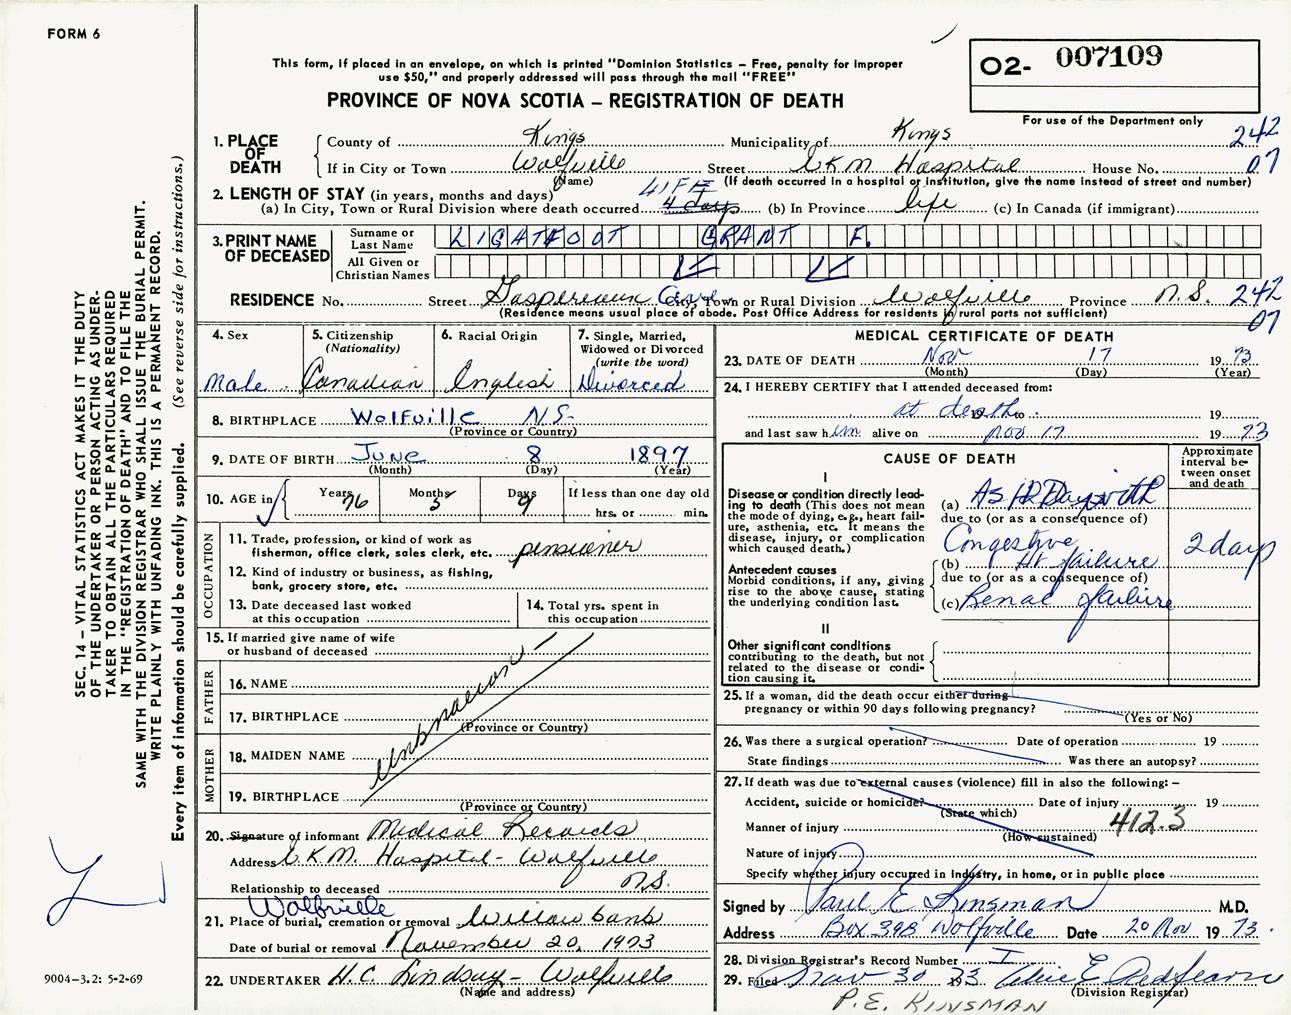 FORM 6
This form, if placed in an envelope, on which is printed "Dominion Statistics – Free, penalty for improper
use $50," and properly addressed will pass through the mail "FREE"
PROVINCE OF NOVA SCOTIA – REGISTRATION OF DEATH
O2- 007109
For use of the Department only
1. PLACE OF DEATH County of Kings Municipality of Kings 242
If in City or Town Wolfville Street E.K.M. Hospital House No. 07
(Name) (If death occurred in a hospital or institution, give the name instead of street and number)
2. LENGTH OF STAY (in years, months and days) LIFE
(a) In City, Town or Rural Division where death occurred 4 days (b) In Province life (c) In Canada (if immigrant)
3. PRINT NAME OF DECEASED Surname or Last Name LIGHTFOOT GRANT F.
All Given or Christian Names
RESIDENCE No. Street Gaspereaux Ave. City, Town or Rural Division Wolfville Province N.S. 242
(Residence means usual place of abode. Post Office Address for residents in rural parts not sufficient) 07
4. Sex
Male
5. Citizenship
(Nationality)
Canadian
6. Racial Origin
English
7. Single, Married,
Widowed or Divorced
(write the word)
Divorced
8. BIRTHPLACE Wolfville N.S.
(Province or Country)
9. DATE OF BIRTH June 8 1897
(Month) (Day) (Year)
10. AGE in Years 76 Months 5 Days 9 If less than one day old
hrs. or min.
OCCUPATION
11. Trade, profession, or kind of work as
fisherman, office clerk, sales clerk, etc. pensioner
12. Kind of industry or business, as fishing,
bank, grocery store, etc.
13. Date deceased last worked
at this occupation
14. Total yrs. spent in
this occupation
15. If married give name of wife
or husband of deceased
FATHER
16. NAME
17. BIRTHPLACE
(Province or Country)
Unknown
MOTHER
18. MAIDEN NAME
19. BIRTHPLACE
(Province or Country)
20. Signature of informant Medical Records
Address E.K.M. Hospital - Wolfville
N.S.
Relationship to deceased
Wolfville
21. Place of burial, cremation or removal Willowbank
Date of burial or removal November 20, 1973
22. UNDERTAKER H.C. Lindsay - Wolfville
(Name and address)
MEDICAL CERTIFICATE OF DEATH
23. DATE OF DEATH Nov 17 1973
(Month) (Day) (Year)
24. I HEREBY CERTIFY that I attended deceased from:
at death 19 to 19
and last saw him alive on Nov 17 1973
CAUSE OF DEATH
Approximate
interval be-
tween onset
and death
I
Disease or condition directly lead-
ing to death (This does not mean
the mode of dying, e.g., heart fail-
ure, asthenia, etc. It means the
disease, injury, or complication
which caused death.)
(a) ASHD with
due to (or as a consequence of)
Congestive
(b) Ht failure 2 days
Antecedent causes
Morbid conditions, if any, giving
rise to the above cause, stating
the underlying condition last.
due to (or as a consequence of)
(c) Renal failure
II
Other significant conditions
contributing to the death, but not
related to the disease or condi-
tion causing it.
25. If a woman, did the death occur either during
pregnancy or within 90 days following pregnancy?
(Yes or No)
26. Was there a surgical operation? Date of operation 19
State findings Was there an autopsy?
27. If death was due to external causes (violence) fill in also the following: –
Accident, suicide or homicide? Date of injury 19
(State which)
412.3
Manner of injury
(How sustained)
Nature of injury
Specify whether injury occurred in Industry, in home, or in public place
Signed by Paul E Kinsman M.D.
Address Box 398 Wolfville Date 20 Nov 1973.
28. Division Registrar's Record Number
29. Filed Nov 30 1973 Alice E. Redfearn
(Division Registrar)
P.E. KINSMAN
SEC. 14 – VITAL STATISTICS ACT MAKES IT THE DUTY
OF THE UNDERTAKER OR PERSON ACTING AS UNDER-
TAKER TO OBTAIN ALL THE PARTICULARS REQUIRED
IN THE "REGISTRATION OF DEATH" AND TO FILE THE
SAME WITH THE DIVISION REGISTRAR WHO SHALL ISSUE THE BURIAL PERMIT.
WRITE PLAINLY WITH UNFADING INK. THIS IS A PERMANENT RECORD.
Every item of information should be carefully supplied. (See reverse side for instructions.)
9004–3.2: 5-2-69